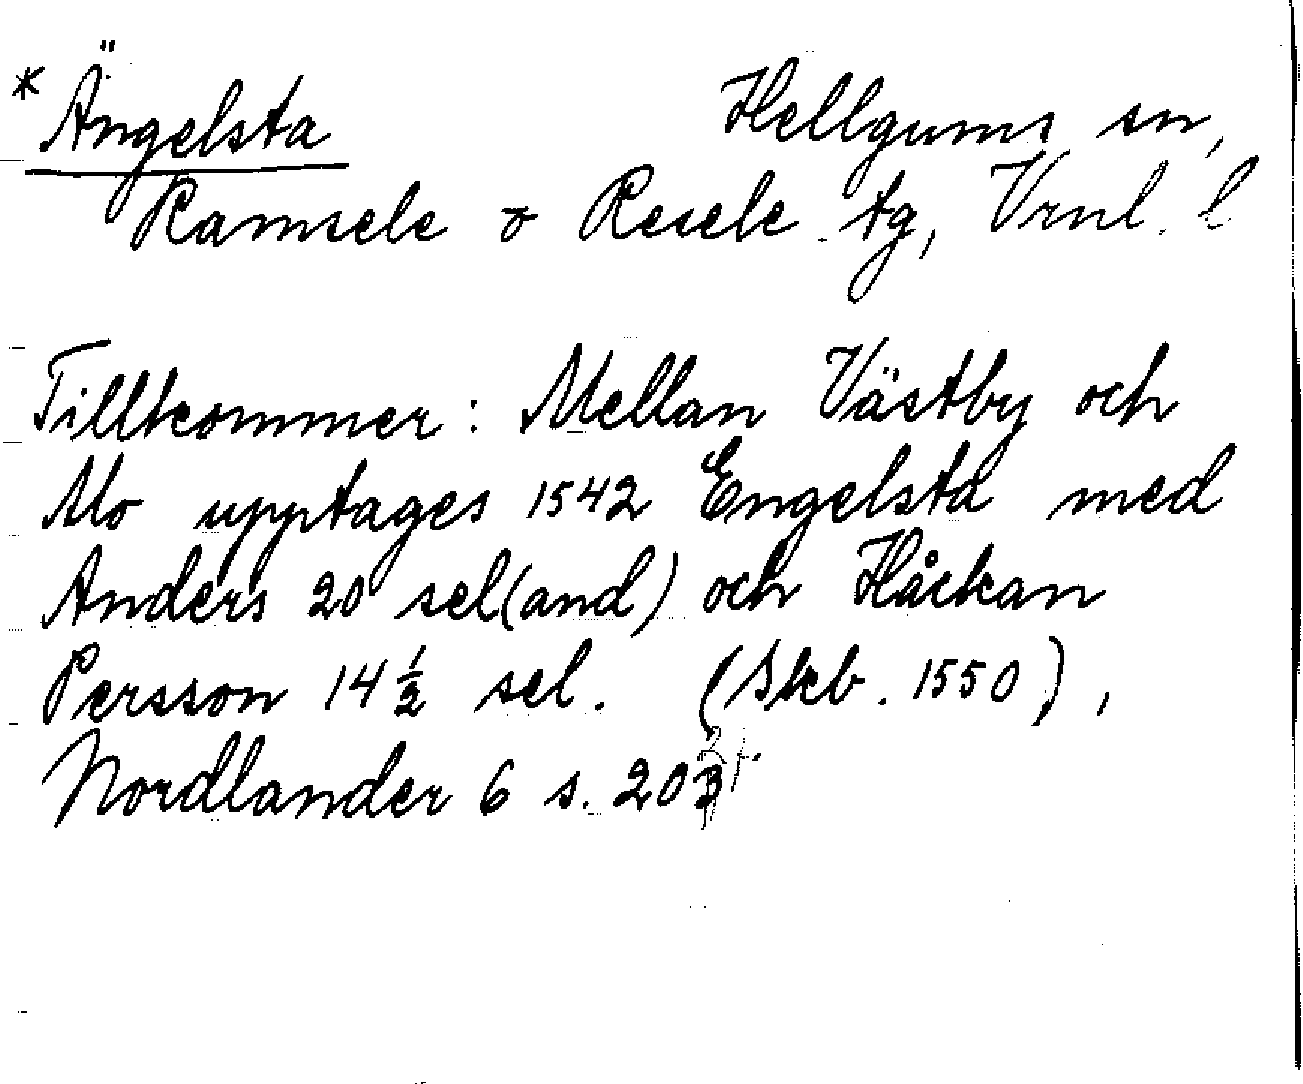 * Ängelsta Hellgums sn,
Ramsele o Resele tg, Vrnl. l
Tillkommer: Mellan Västby och
Mo upptages 1542 Engelsta med
Anders 20 sel(and) och Håckan
Persson 14 ½ sel. (Skb. 1550),
Nordlander 6 s. 203